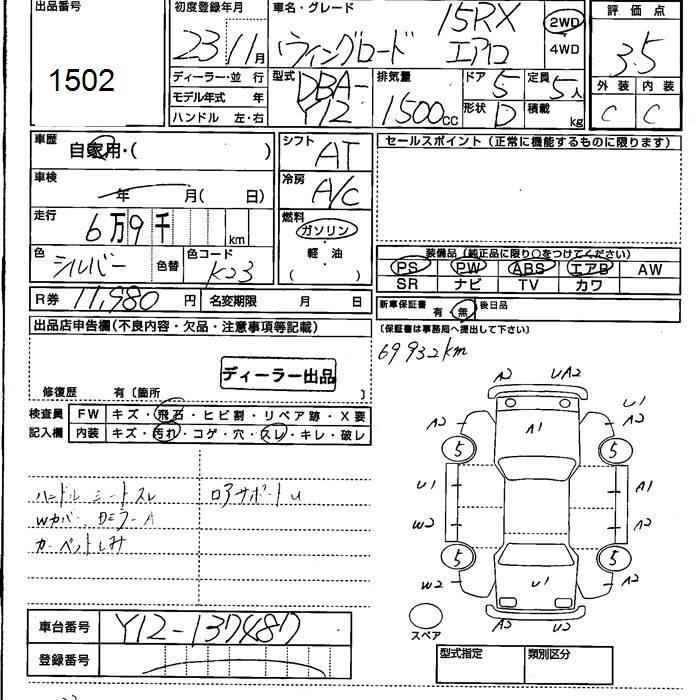 出品番号 初度登録年月 車名・グレード 15RX 2WD 評価点
1502 23 11月 ウィングロード エアロ 4WD 3.5
ディーラー・並 行 型式 DBA- 排気量 ドア 5 定員 5人 外装 内装
モデル年式 年 Y12 1500cc 形状 D 積載 kg C C
ハンドル 左・右
車歴 自家用・( ) シフト AT セールスポイント (正常に機能するものに限ります)
車検 年 月( 日) 冷房 A/C
走行 6万9千 km 燃料 ガソリン
色 シルバー 色替 色コード K23 軽・油 ( )
装備品 (純正品に限り○をつけてください)
PS PW ABS エアB AW
SR ナビ TV カワ
R券 11,980円 名変期限 月 日 新車保証書 有・無 後日品
(保証書は事務局へ提出して下さい)
出品店申告欄 (不良内容・欠品・注意事項等記載)
69932km
ディーラー出品
修復歴 有〔箇所 〕
検査員 FW キズ・飛石・ヒビ割・リペア跡・X要
記入欄 内装 キズ・汚れ・コゲ・穴・スレ・キレ・破レ
A2 UA2
A2 A1 U1 A2
5 5
U1 A1
W2 A2
5 5
W2 U1 A2
A2 U2
スペア
ハンドル シートスレ ロアサポートU
Wカバー、Dミラー A
カーペットしみ
車台番号 Y12-137487
登録番号
型式指定 類別区分